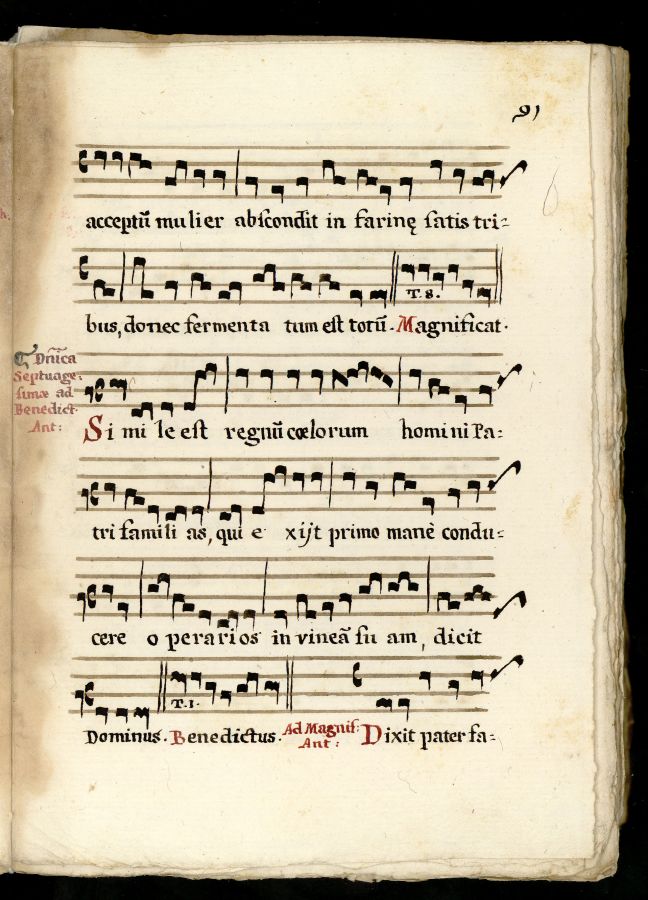 91
acceptũ mulier abscondit in farinę satis tri-
bus, donec fermenta tum est totũ. Magnificat.
T. 8.
Dñica
Septuage-
simæ ad
Benedict.
Ant:
Si mi le est regnũ cœlorum homini Pa-
tri famili as, qui e xijt primo manè condu-
cere operarios in vineã su am, dicit
T. 1.
Dominus. Benedictus. Ad Magnif: Ant: Dixit pater fa-